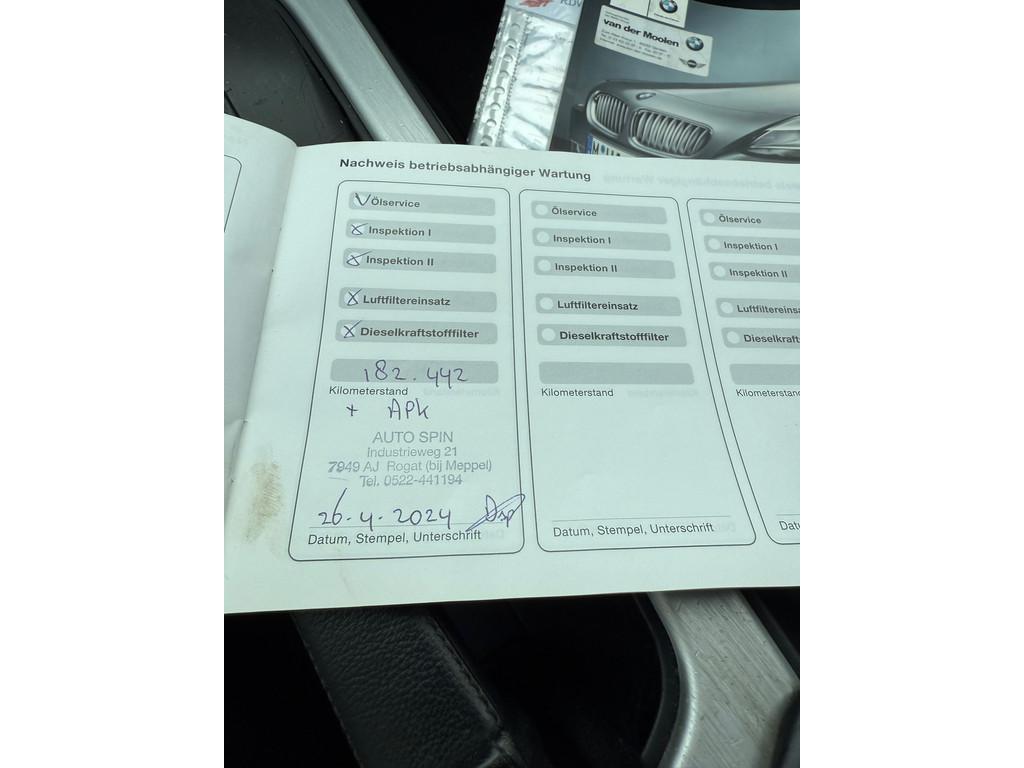 RDW
van der Moolen
Nachweis betriebsabhängiger Wartung
Ölservice
Inspektion I
Inspektion II
Luftfiltereinsatz
Dieselkraftstofffilter
182.442
Kilometerstand
+ APK
AUTO SPIN
Industrieweg 21
7949 AJ Rogat (bij Meppel)
Tel. 0522-441194
26-4-2024
Datum, Stempel, Unterschrift
Ölservice
Inspektion I
Inspektion II
Luftfiltereinsatz
Dieselkraftstofffilter
Kilometerstand
Datum, Stempel, Unterschrift
Ölservice
Inspektion I
Inspektion II
Luftfiltereinsa
Dieselkraft
Kilometerstand
Datu